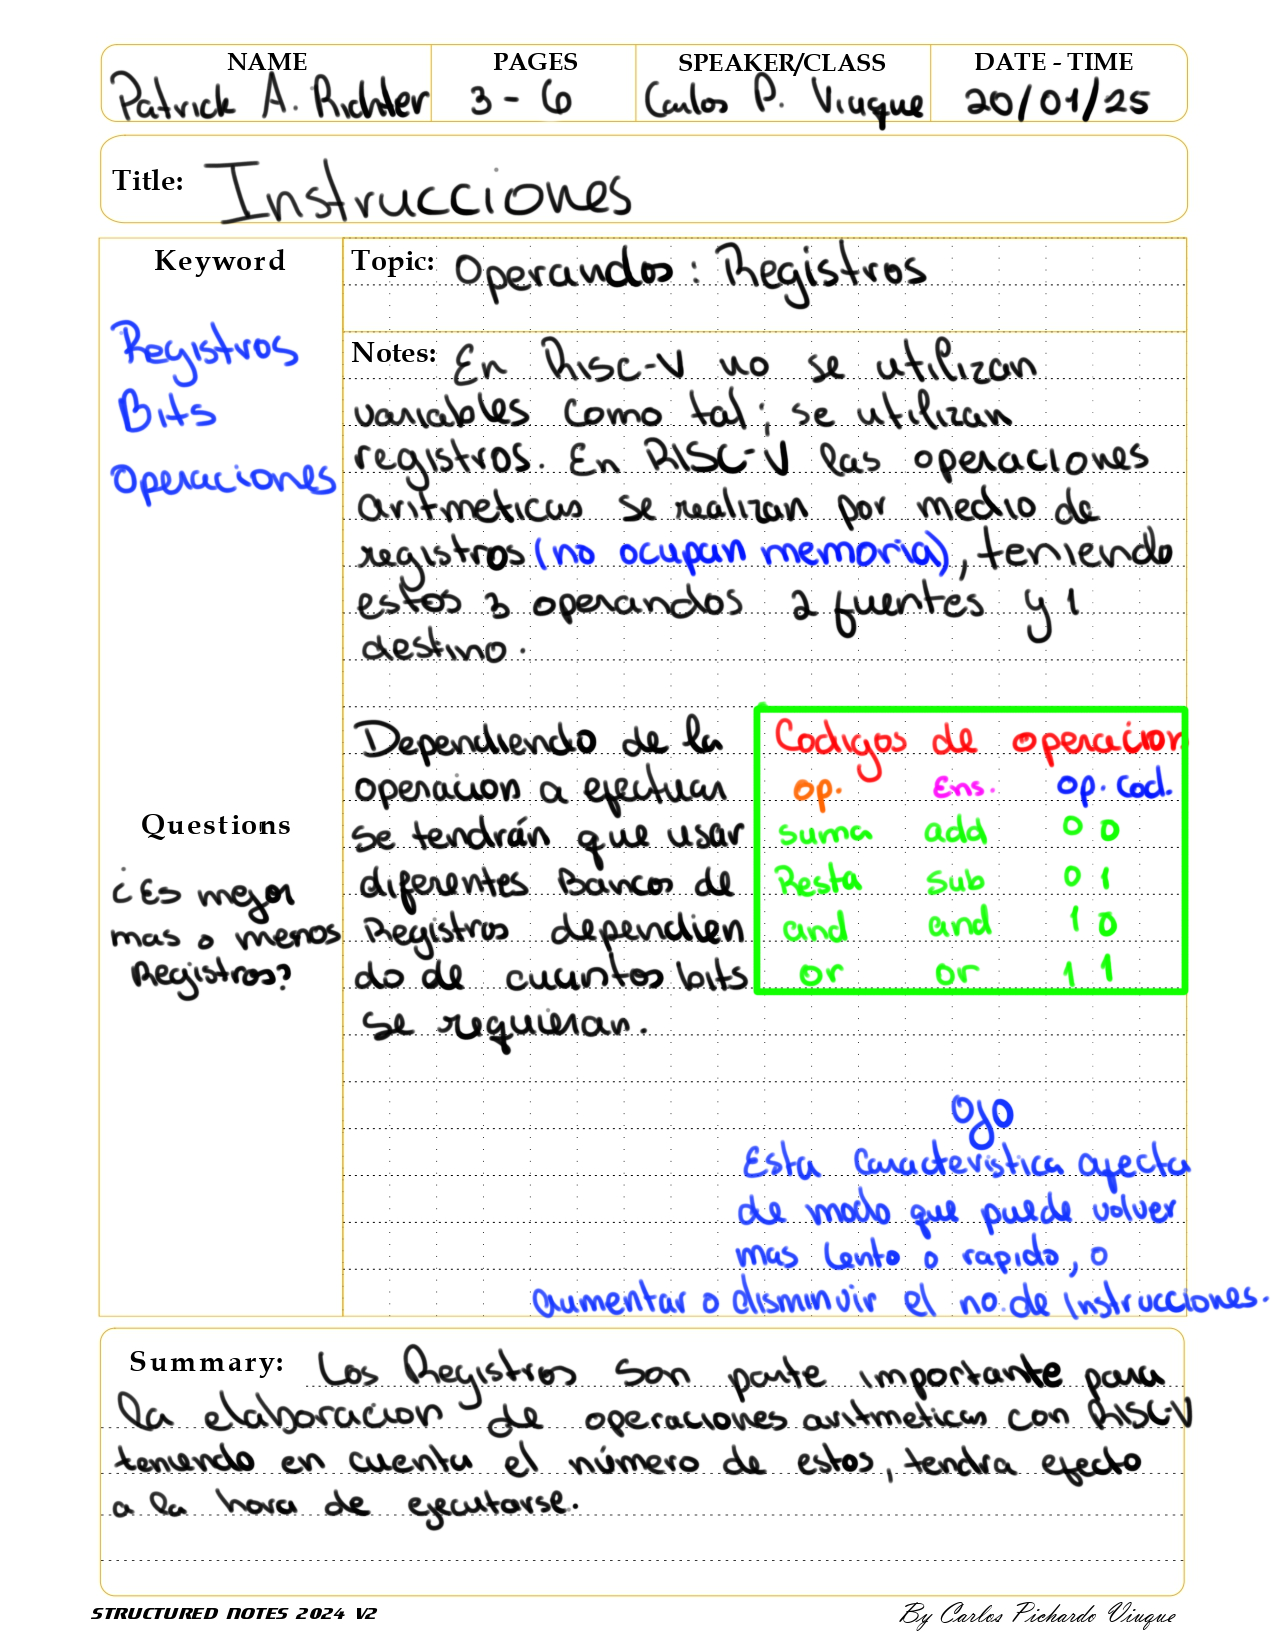 NAME PAGES SPEAKER/CLASS DATE - TIME
Patrick A. Richter 3 - 6 Carlos P. Viuque 20/01/25
Title: Instrucciones
Keyword
Registros
Bits
Operaciones
Topic: Operandos: Registros
Notes: En RISC-V no se utilizan
variables como tal; se utilizan
registros. En RISC-V las operaciones
aritmeticas se realizan por medio de
registros (no ocupan memoria), teniendo
estos 3 operandos 2 fuentes y 1
destino.
Dependiendo de la
operacion a efectuar
se tendrán que usar
diferentes Bancos de
Registros dependien
do de cuantos bits
se requieran.
Codigos de operacion
op. Ens. op. cod.
suma add 0 0
Resta sub 0 1
and and 1 0
or or 1 1
Questions
¿Es mejor
mas o menos
Registros?
Ojo
Esta Caracteristica afecta
de modo que puede volver
mas lento o rapido, o
aumentar o disminuir el no. de instrucciones.
Summary: Los Registros son parte importante para
la elaboracion de operaciones aritmeticas con RISC-V
teniendo en cuenta el número de estos, tendra efecto
a la hora de ejecutarse.
STRUCTURED NOTES 2024 V2
By Carlos Pichardo Viuque